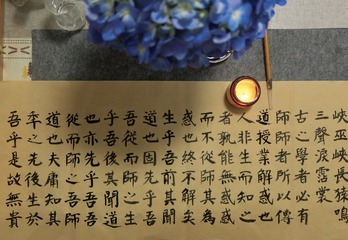 峡巫峡長猿鳴
三聲淚霑裳
古之學者必有
師師者所以傳
道授業解惑也
人非生而知之
者孰能無惑惑
而不從師其為
惑也終不解矣
生乎吾前其聞
道也固先乎吾
吾從而師之生
乎吾後其聞道
也亦先乎吾吾
從而師之吾師
道也夫庸知其
年之先後生於
吾乎是故無貴